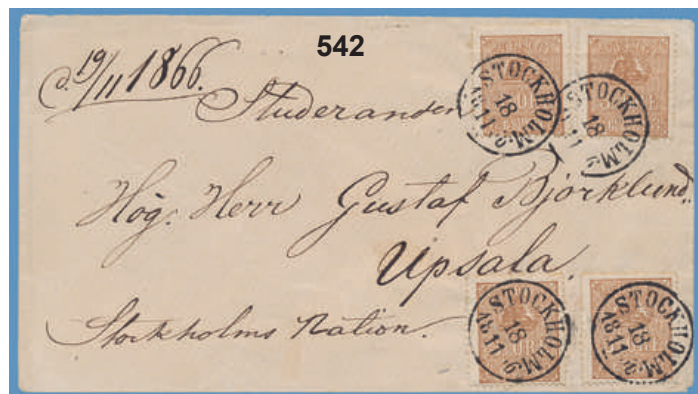 542
d. 19/11 1866.
Studeranden
Hög. Herr Gustaf Björklund.
Upsala.
Stockholms Nation.
STOCKHOLM
18
18·11
STOCKHOLM
18
11
STOCKHOLM
18
18·11
STOCKHOLM
18
18·11